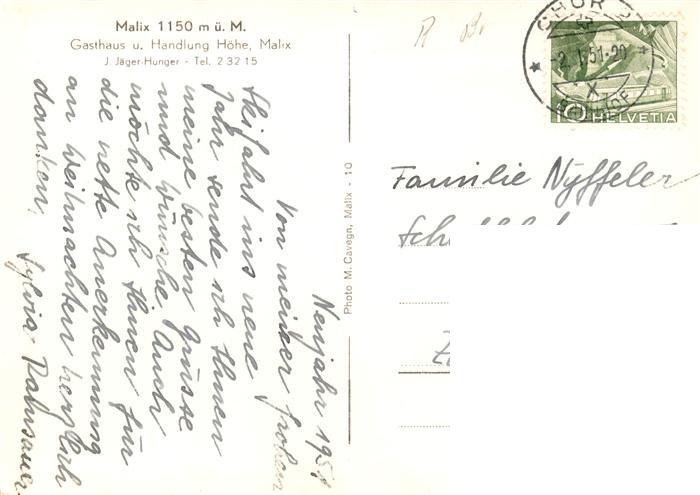 Malix 1150 m ü. M.
Gasthaus u. Handlung Höhe, Malix
J. Jäger-Hunger - Tel. 2 32 15
Neujahr 1951
Von meiner frohen
Skifahrt ins neue
Jahr sende ich Ihnen
meine besten Grüsse
und Wünsche. Auch
möchte ich Ihnen für
die nette Anerkennung
an Weihnachten herzlich
danken.
Sylvia
Photo M. Cavegn, Malix - 10
CHUR 2
-2. I. 51-20
X
HELVETIA
10
Familie Nyffeler